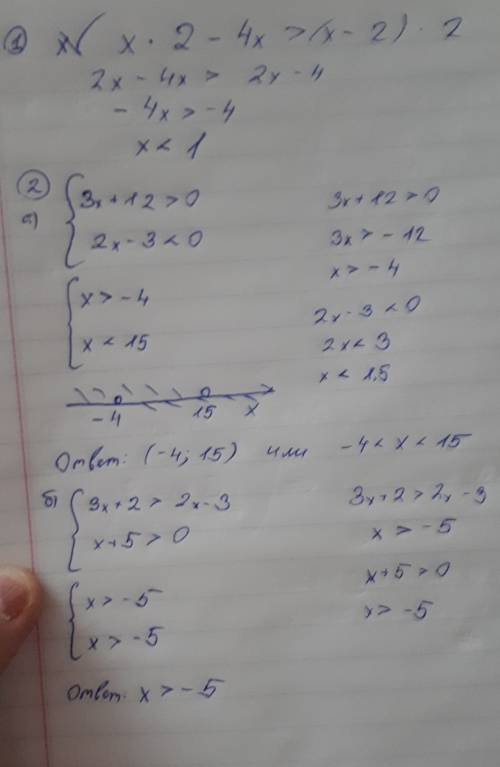 ① x · 2 - 4x > (x - 2) · 2
2x - 4x > 2x - 4
- 4x > - 4
x < 1
② а)
{ 3x + 12 > 0
2x - 3 < 0
{ x > - 4
x < 15
3x + 12 > 0
3x > - 12
x > - 4
2x - 3 < 0
2x < 3
x < 1,5
-4 15 x
Ответ: (-4; 15) или -4 < x < 15
б) { 3x + 2 > 2x - 3
x + 5 > 0
{ x > - 5
x > - 5
3x + 2 > 2x - 3
x > - 5
x + 5 > 0
x > - 5
Ответ: x > - 5